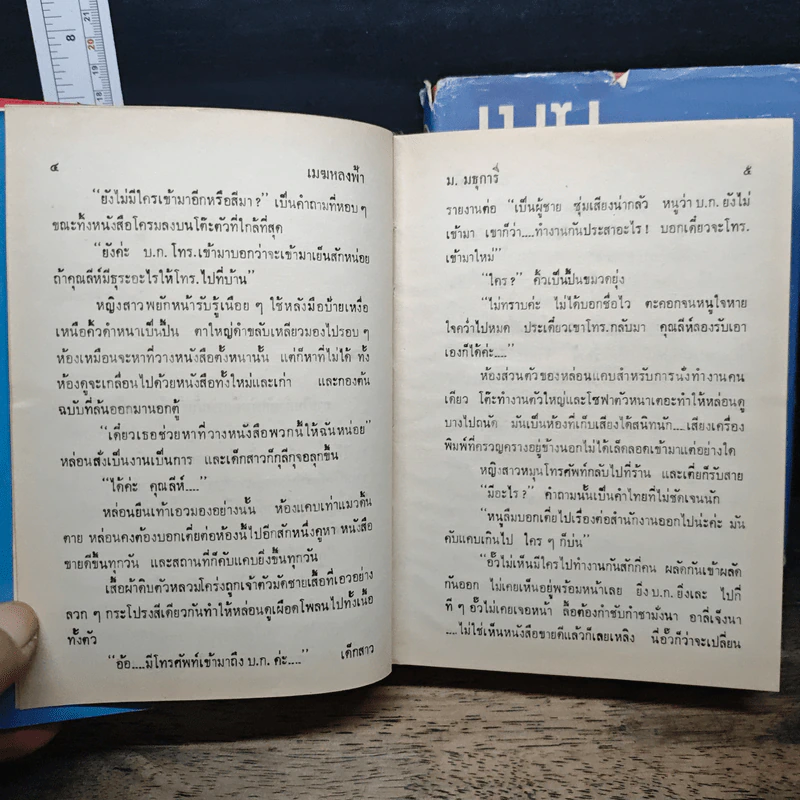 8
21
20
19
18
๔
เมฆหลงฟ้า
"ยังไม่มีใครเข้ามาอีกหรือสีมา?" เป็นคำถามที่หอบๆ
ขณะทิ้งหนังสือโครมลงบนโต๊ะตัวที่ใกล้ที่สุด
"ยังค่ะ บ.ก. โทร. เข้ามาบอกว่าจะเข้ามาเย็นสักหน่อย
ถ้าคุณลีห์มีธุระอะไรให้โทร. ไปที่บ้าน"
หญิงสาวพยักหน้ารับรู้เนือย ๆ ใช้หลังมือป้ายเหงื่อ
เหนือคิ้วดำหนาเป็นปื้น ตาใหญ่ดำขลับเหลียวมองไปรอบ ๆ
ห้องเหมือนจะหาที่วางหนังสือตั้งหนานั้น แต่ก็หาที่ไม่ได้ ทั้ง
ห้องดูจะเกลื่อนไปด้วยหนังสือทั้งใหม่และเก่า และกองต้น
ฉบับที่ล้นออกมานอกตู้
"เดี๋ยวเธอช่วยหาที่วางหนังสือพวกนี้ให้ฉันหน่อย"
หล่อนสั่งเป็นงานเป็นการ และเด็กสาวก็กุลีกุจอลุกขึ้น
"ได้ค่ะ คุณลีห์...."
หล่อนยืนเท้าเอวมองอย่างนั้น ห้องแคบเท่าแมวดิ้น
ตาย หล่อนคงต้องบอกเตี่ยต่อห้องนี้ไปอีกสักหนึ่งคูหา หนังสือ
ขายดีขึ้นทุกวัน และสถานที่ก็คับแคบยิ่งขึ้นทุกวัน
เสื้อผ้าดิบตัวหลวมโคร่งถูกเจ้าตัวมัดชายเสื้อที่เอวอย่าง
ลวก ๆ กระโปรงสีเดียวกันทำให้หล่อนดูเผือดโพลนไปทั้งเนื้อ
ทั้งตัว
"อ้อ....มีโทรศัพท์เข้ามาถึง บ.ก. ค่ะ...." เด็กสาว
ม. มธุการี
๕
รายงานต่อ "เป็นผู้ชาย ซุ่มเสียงน่ากลัว หนูว่า บ.ก. ยังไม่
เข้ามา เขาก็ว่า....ทำงานกันประสาอะไร! บอกเดี๋ยวจะโทร.
เข้ามาใหม่"
"ใคร?" คิ้วเป็นปื้นขมวดยุ่ง
"ไม่ทราบค่ะ ไม่ได้บอกชื่อไว้ ตะคอกจนหนูใจหาย
ใจคว่ำไปหมด ประเดี๋ยวเขาโทร. กลับมา คุณลีห์ลองรับเอา
เองก็ได้ค่ะ...."
ห้องส่วนตัวของหล่อนแคบสำหรับการนั่งทำงานคน
เดียว โต๊ะทำงานตัวใหญ่และโซฟาตัวหนาเตอะทำให้หล่อนดู
บางไปถนัด มันเป็นห้องที่เก็บเสียงได้สนิทนัก....เสียงเครื่อง
พิมพ์ที่ครวญครางอยู่ข้างนอกไม่ได้เล็ดลอดเข้ามาแต่อย่างใด
หญิงสาวหมุนโทรศัพท์กลับไปที่ร้าน และเตี่ยก็รับสาย
"มีอะไร?" คำถามนั้นเป็นคำไทยที่ไม่ชัดเจนนัก
"หนูลืมบอกเตี่ยไปเรื่องต่อสำนักงานออกไปน่ะค่ะ มัน
คับแคบเกินไป ใคร ๆ ก็บ่น"
"อั๊วไม่เห็นมีใครไปทำงานกันสักกี่คน ผลัดกันเข้าผลัด
กันออก ไม่เคยเห็นอยู่พร้อมหน้าเลย ยิ่ง บ.ก. ยิ่งละ ไปกี่
ที ๆ อั๊วไม่เคยเจอหน้า ลื้อต้องกำชับกำชามั่งนา อาลี่เจ็งนา
....ไม่ใช่เห็นหนังสือขายดีแล้วก็เลยเหลิง นี่อั๊วก็ว่าจะเปลี่ยน